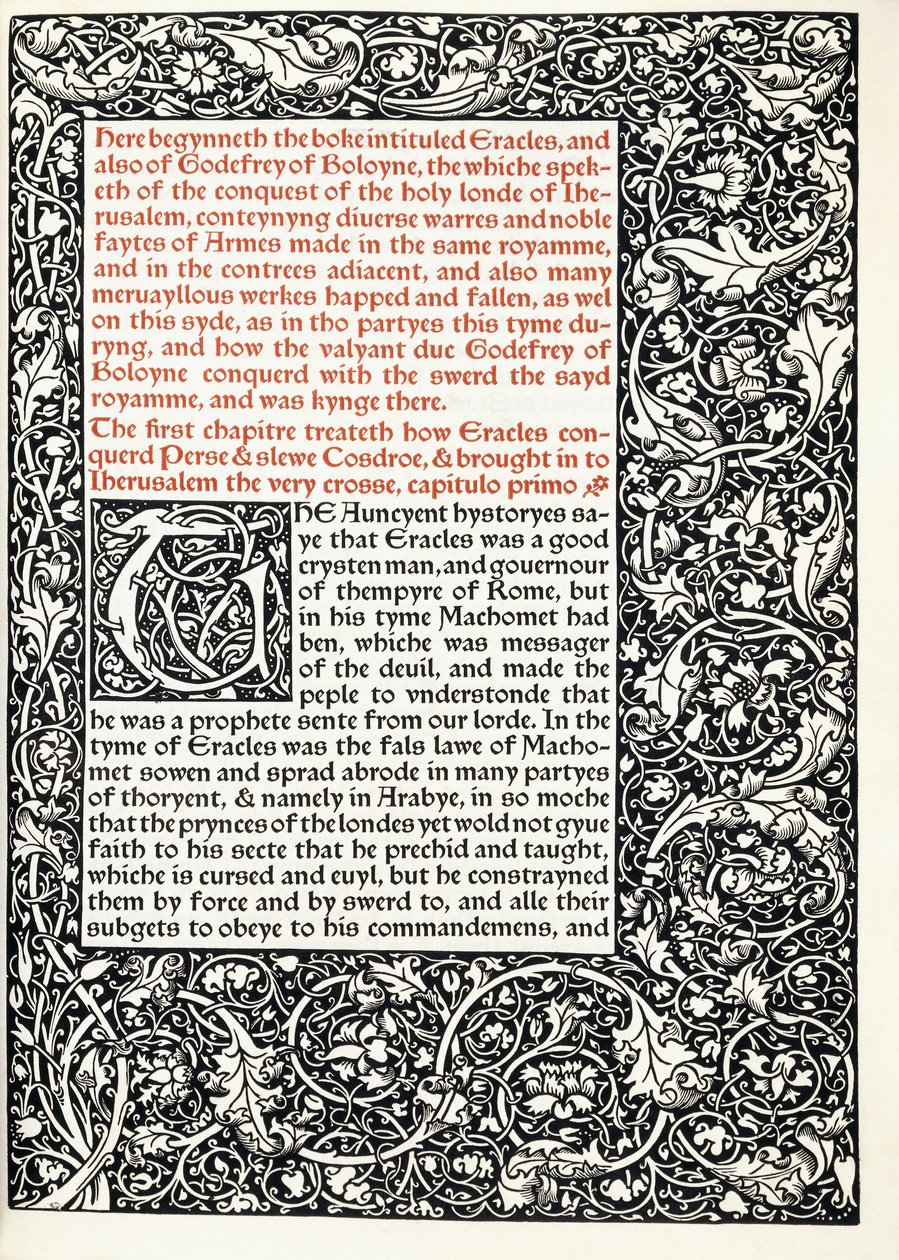 Here begynneth the boke intituled Eracles, and
also of Godefrey of Boloyne, the whiche spek-
eth of the conquest of the holy londe of Ihe-
rusalem, conteynyng diuerse warres and noble
faytes of Armes made in the same royamme,
and in the contrees adiacent, and also many
meruayllous werkes happed and fallen, as wel
on this syde, as in tho partyes this tyme du-
ryng, and how the valyant duc Godefrey of
Boloyne conquerd with the swerd the sayd
royamme, and was kynge there.
The first chapitre treateth how Eracles con-
querd Perse & slewe Cosdroe, & brought in to
Iherusalem the very crosse, capitulo primo
THE Auncyent hystoryes sa-
ye that Eracles was a good
crysten man, and governour
of thempyre of Rome, but
in his tyme Machomet had
ben, whiche was messager
of the deuil, and made the
peple to vnderstonde that
he was a prophete sente from our lorde. In the
tyme of Eracles was the fals lawe of Macho-
met sowen and sprad abrode in many partyes
of thoryent, & namely in Arabye, in so moche
that the prynces of the londes yet wold not gyue
faith to his secte that he prechid and taught,
whiche is cursed and euyl, but he constrayned
them by force and by swerd to, and alle their
subgets to obeye to his commandemens, and